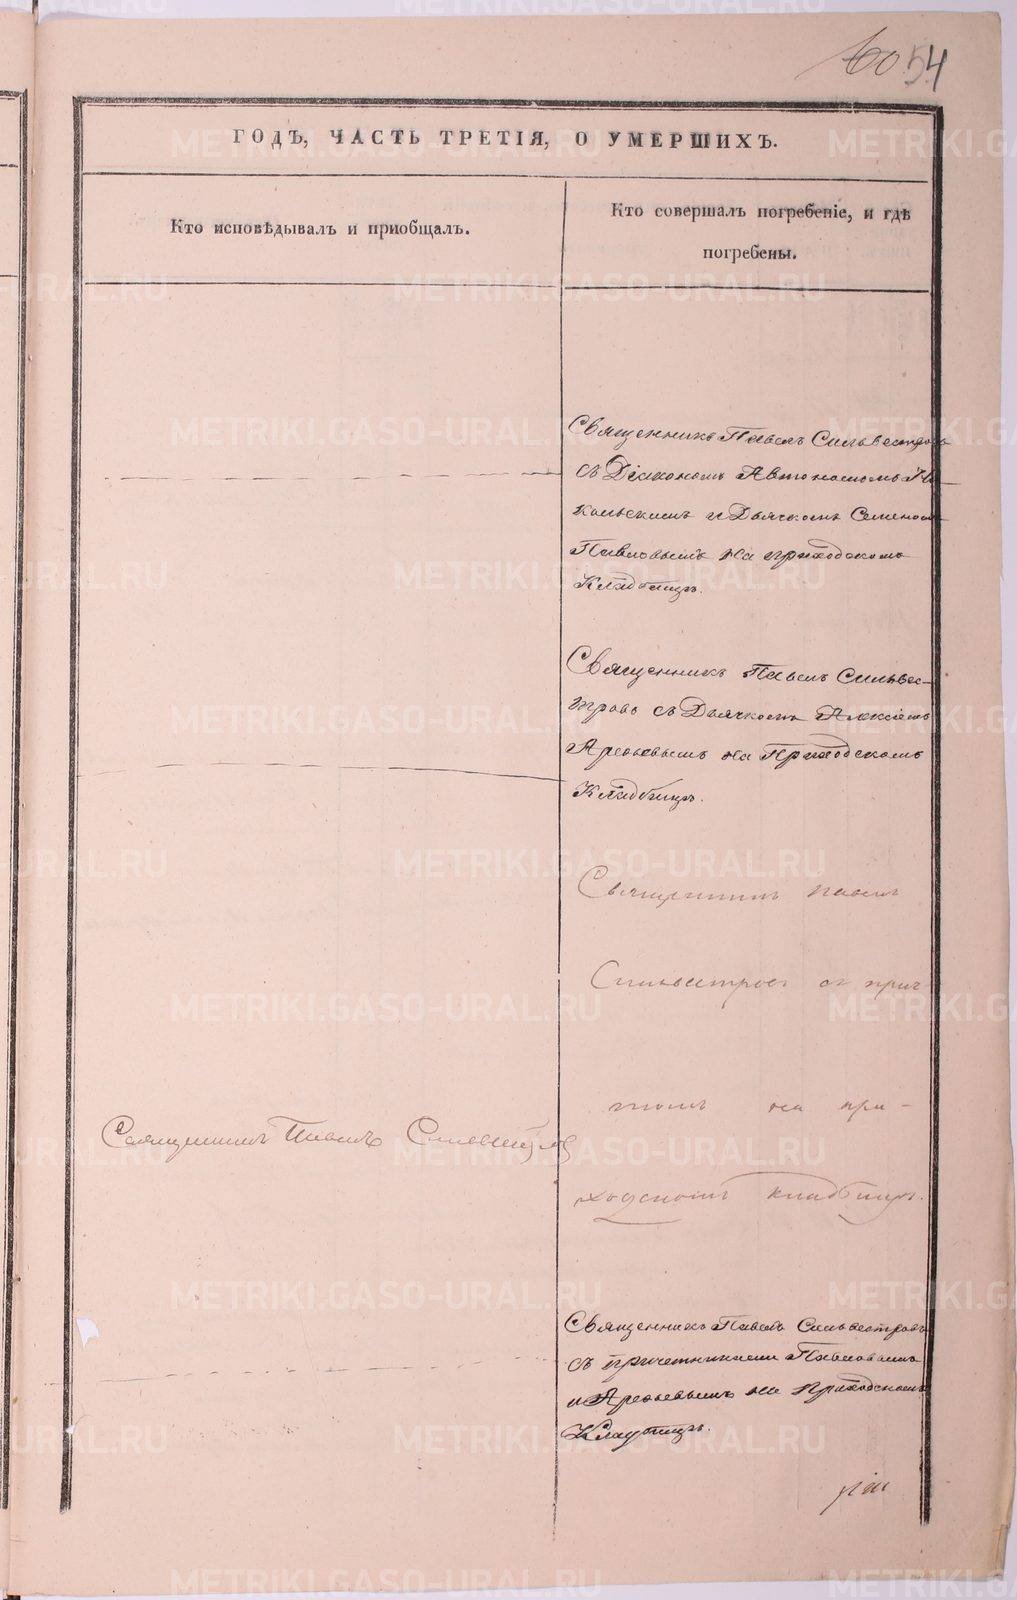 60 54
ГОДЪ, ЧАСТЬ ТРЕТІЯ, О УМЕРШИХЪ.
Кто исповѣдывалъ и пріобщалъ.
Кто совершалъ погребеніе, и гдѣ
погребены.
Священникъ Павелъ Сильвестровъ
съ Діакономъ Автономомъ Ни
кольскимъ и Дьячкомъ Семеномъ
Павловымъ на приходскомъ
Кладбищѣ.
Священникъ Павелъ Сильвес-
тровъ съ Дьячкомъ Алексіемъ
Арефьевымъ на Приходскомъ
Кладбищѣ.
Священникъ Павелъ
Сильвестровъ съ прич-
томъ на при-
Священникъ Павелъ Сильвестровъ
ходскомъ кладбищѣ.
Священникъ Павелъ Сильвестровъ
съ причетниками Павловымъ
и Арефьевымъ на Приходскомъ
Кладбищѣ.
METRIKI.GASO-URAL.RU